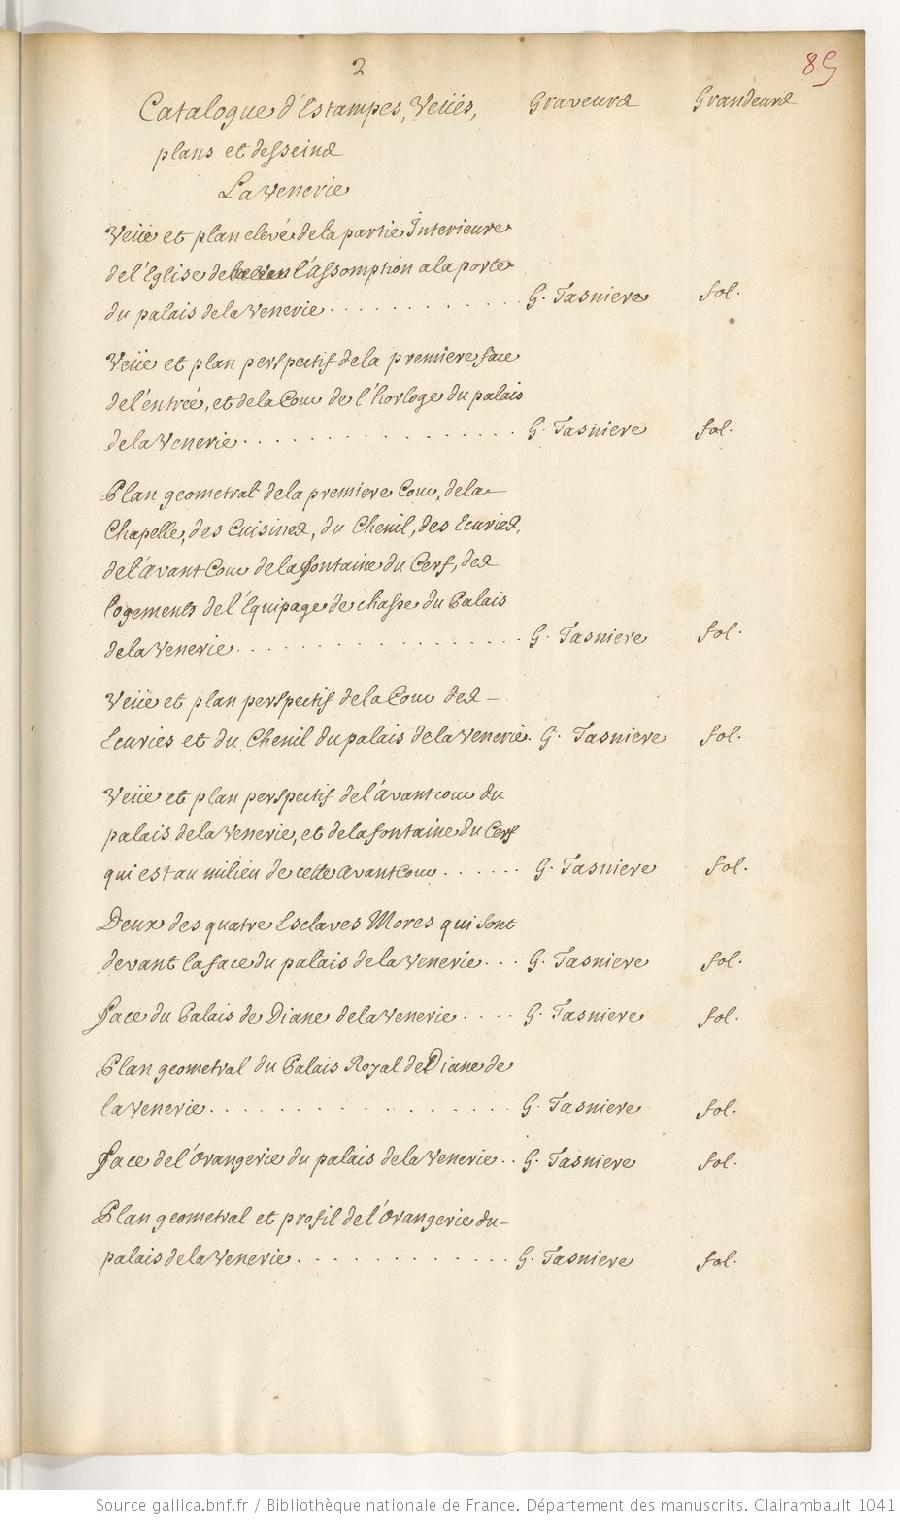 2
89
Catalogue d'Estampes, Veües, Graveurs Grandeurs
plans et desseins
La Venerie
Veüe et plan elevé de la partie Interieure
de l'Eglise de l'Assomption a la porte
du palais de la Venerie . . . . . . . . . . . . G. Tasniere fol.
Veüe et plan perspectif de la premiere face
de l'entrée, et de la Cour de l'horloge du palais
de la Venerie . . . . . . . . . . . . . . . . G. Tasniere fol.
Plan geometral de la premiere Cour, de la
Chapelle, des Cuisines, du Chenil, des Ecuries,
de l'avant Cour de la fontaine du Cerf, des
logements de l'Equipage de chasse du Palais
de la Venerie . . . . . . . . . . . . . . . . . G. Tasniere fol.
Veüe et plan perspectif de la Cour des
Ecuries et du Chenil du palais de la Venerie. G. Tasniere fol.
Veüe et plan perspectif de l'avant cour du
palais de la Venerie, et de la fontaine du Cerf
qui est au milieu de cette avant Cour . . . . . . G. Tasniere fol.
Deux des quatre Esclaves Mores qui sont
devant la face du palais de la Venerie . . . G. Tasniere fol.
face du Palais de Diane de la Venerie . . . . G. Tasniere fol.
Plan geometral du Palais Royal de Diane de
la Venerie . . . . . . . . . . . . . . . . . G. Tasniere fol.
face de l'Orangerie du palais de la Venerie . . G. Tasniere fol.
Plan geometral et profil de l'Orangerie du
palais de la Venerie . . . . . . . . . . . . G. Tasniere fol.
Source gallica.bnf.fr / Bibliothèque nationale de France. Département des manuscrits. Clairambault 1041